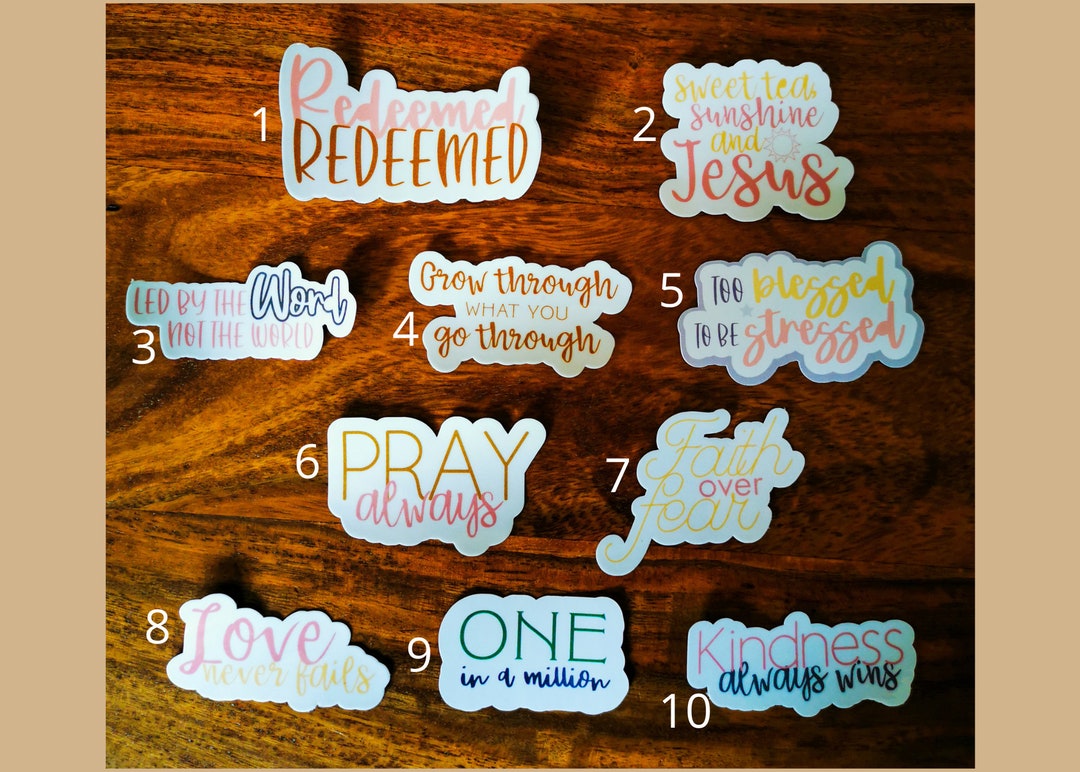 1
Redeemed
REDEEMED
2
sweet tea,
sunshine
and
Jesus
3
LED BY THE Word
NOT THE WORLD
4
Grow through
WHAT YOU
go through
5
TOO blessed
TO BE stressed
6
PRAY
always
7
Faith
over
fear
8
Love
never fails
9
ONE
in a million
10
Kindness
always wins